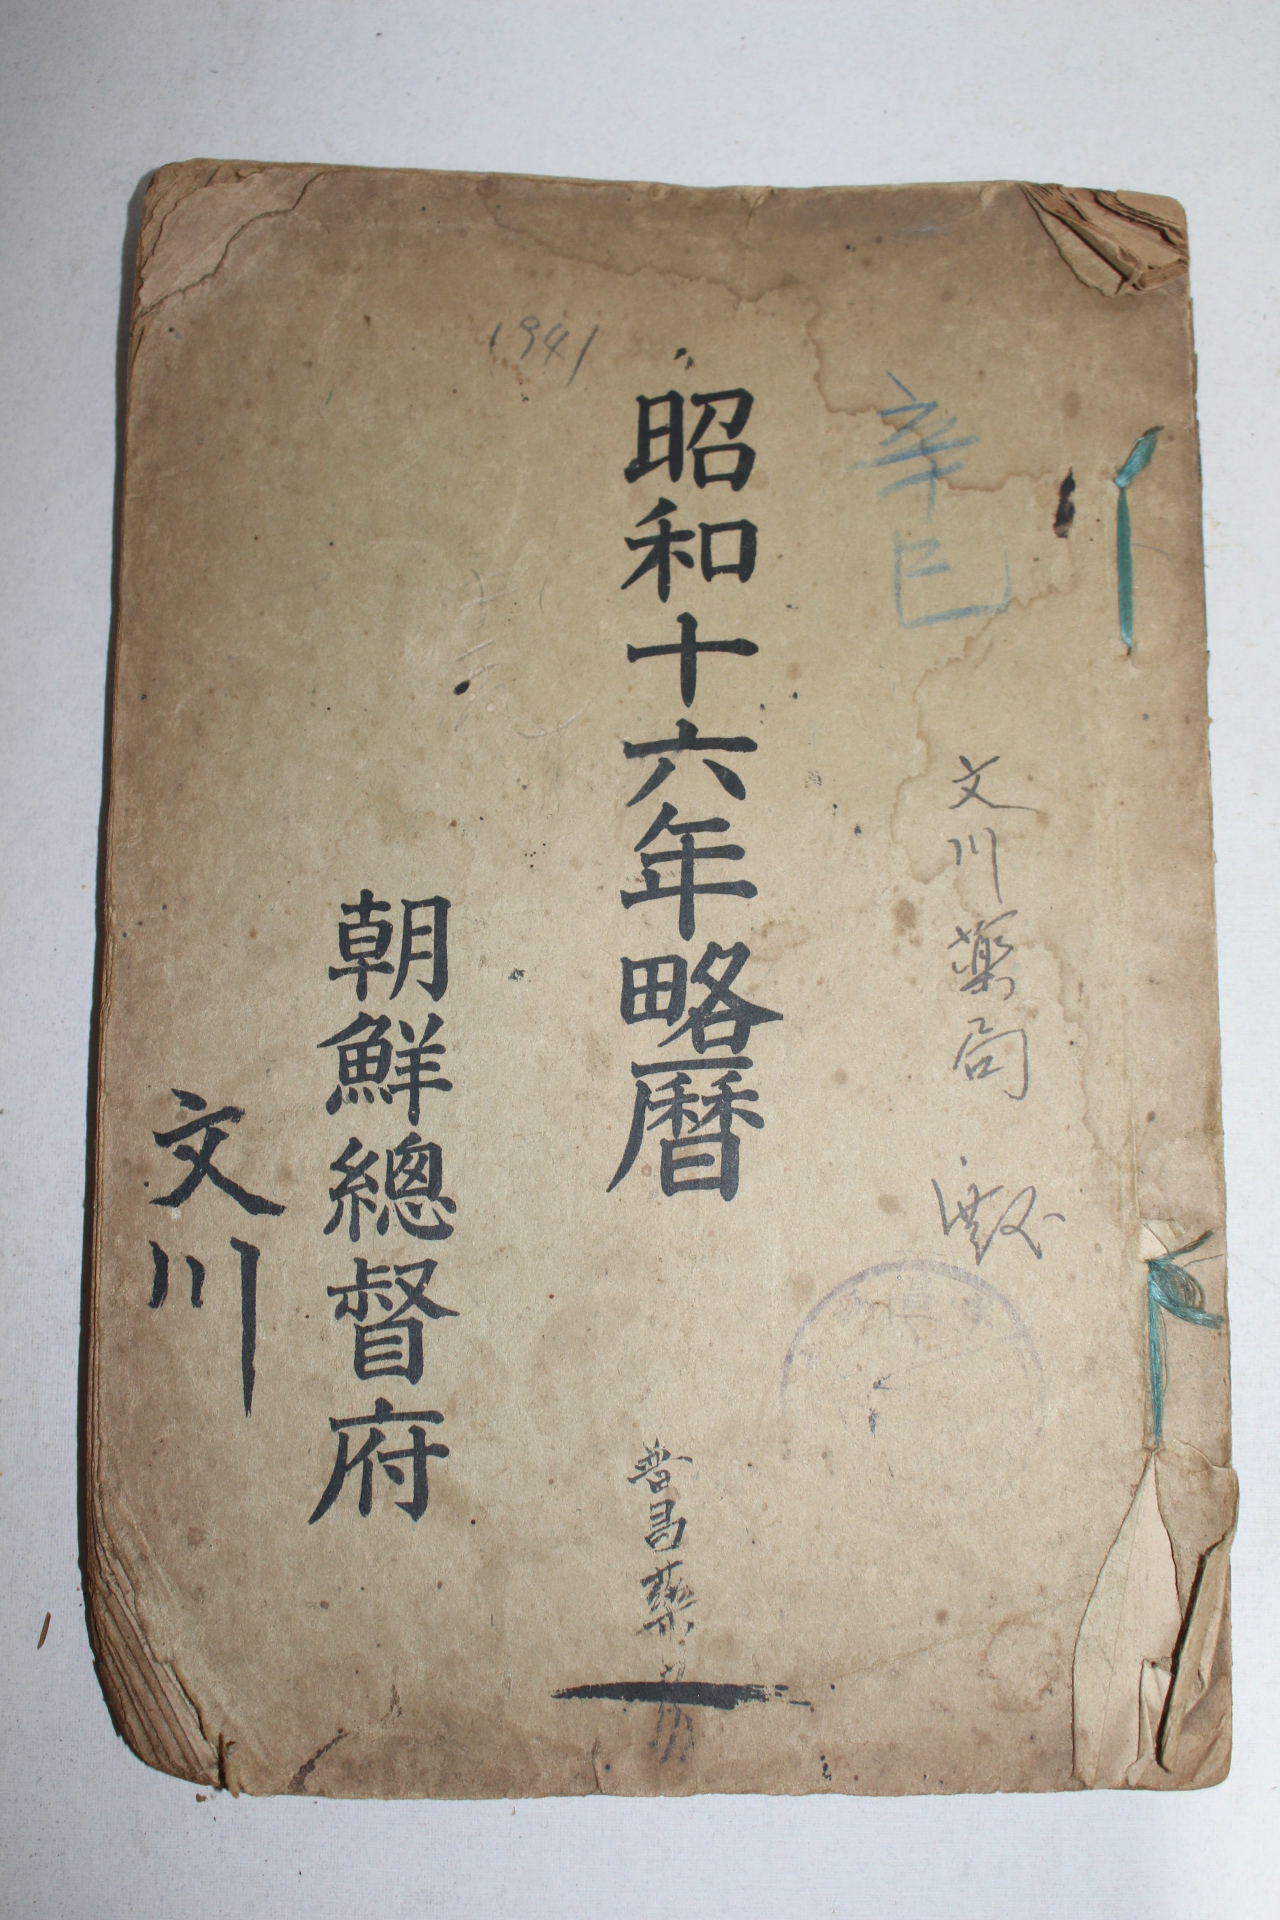 辛巳
文川薬局
昭和十六年略曆
普昌藥
1941
朝鮮總督府
文川